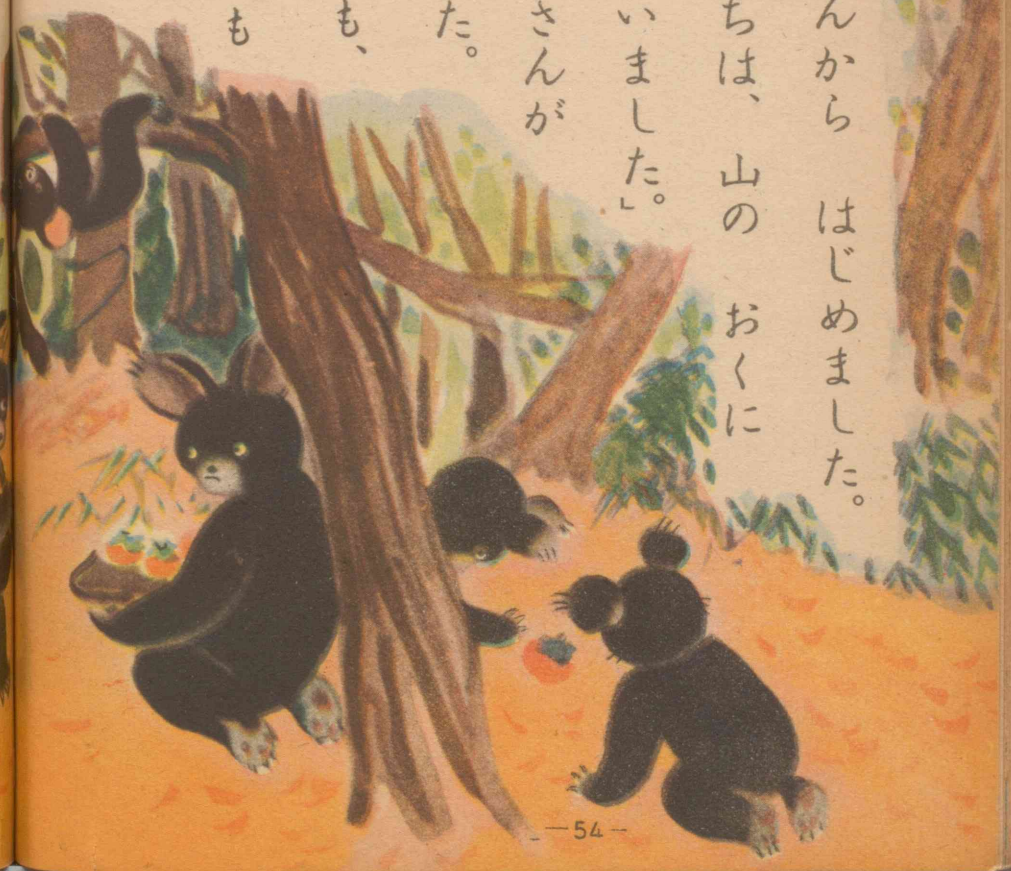 んから はじめました。
ちは、山の おくに
いました。」
さんが
た。
も、
も
—54—